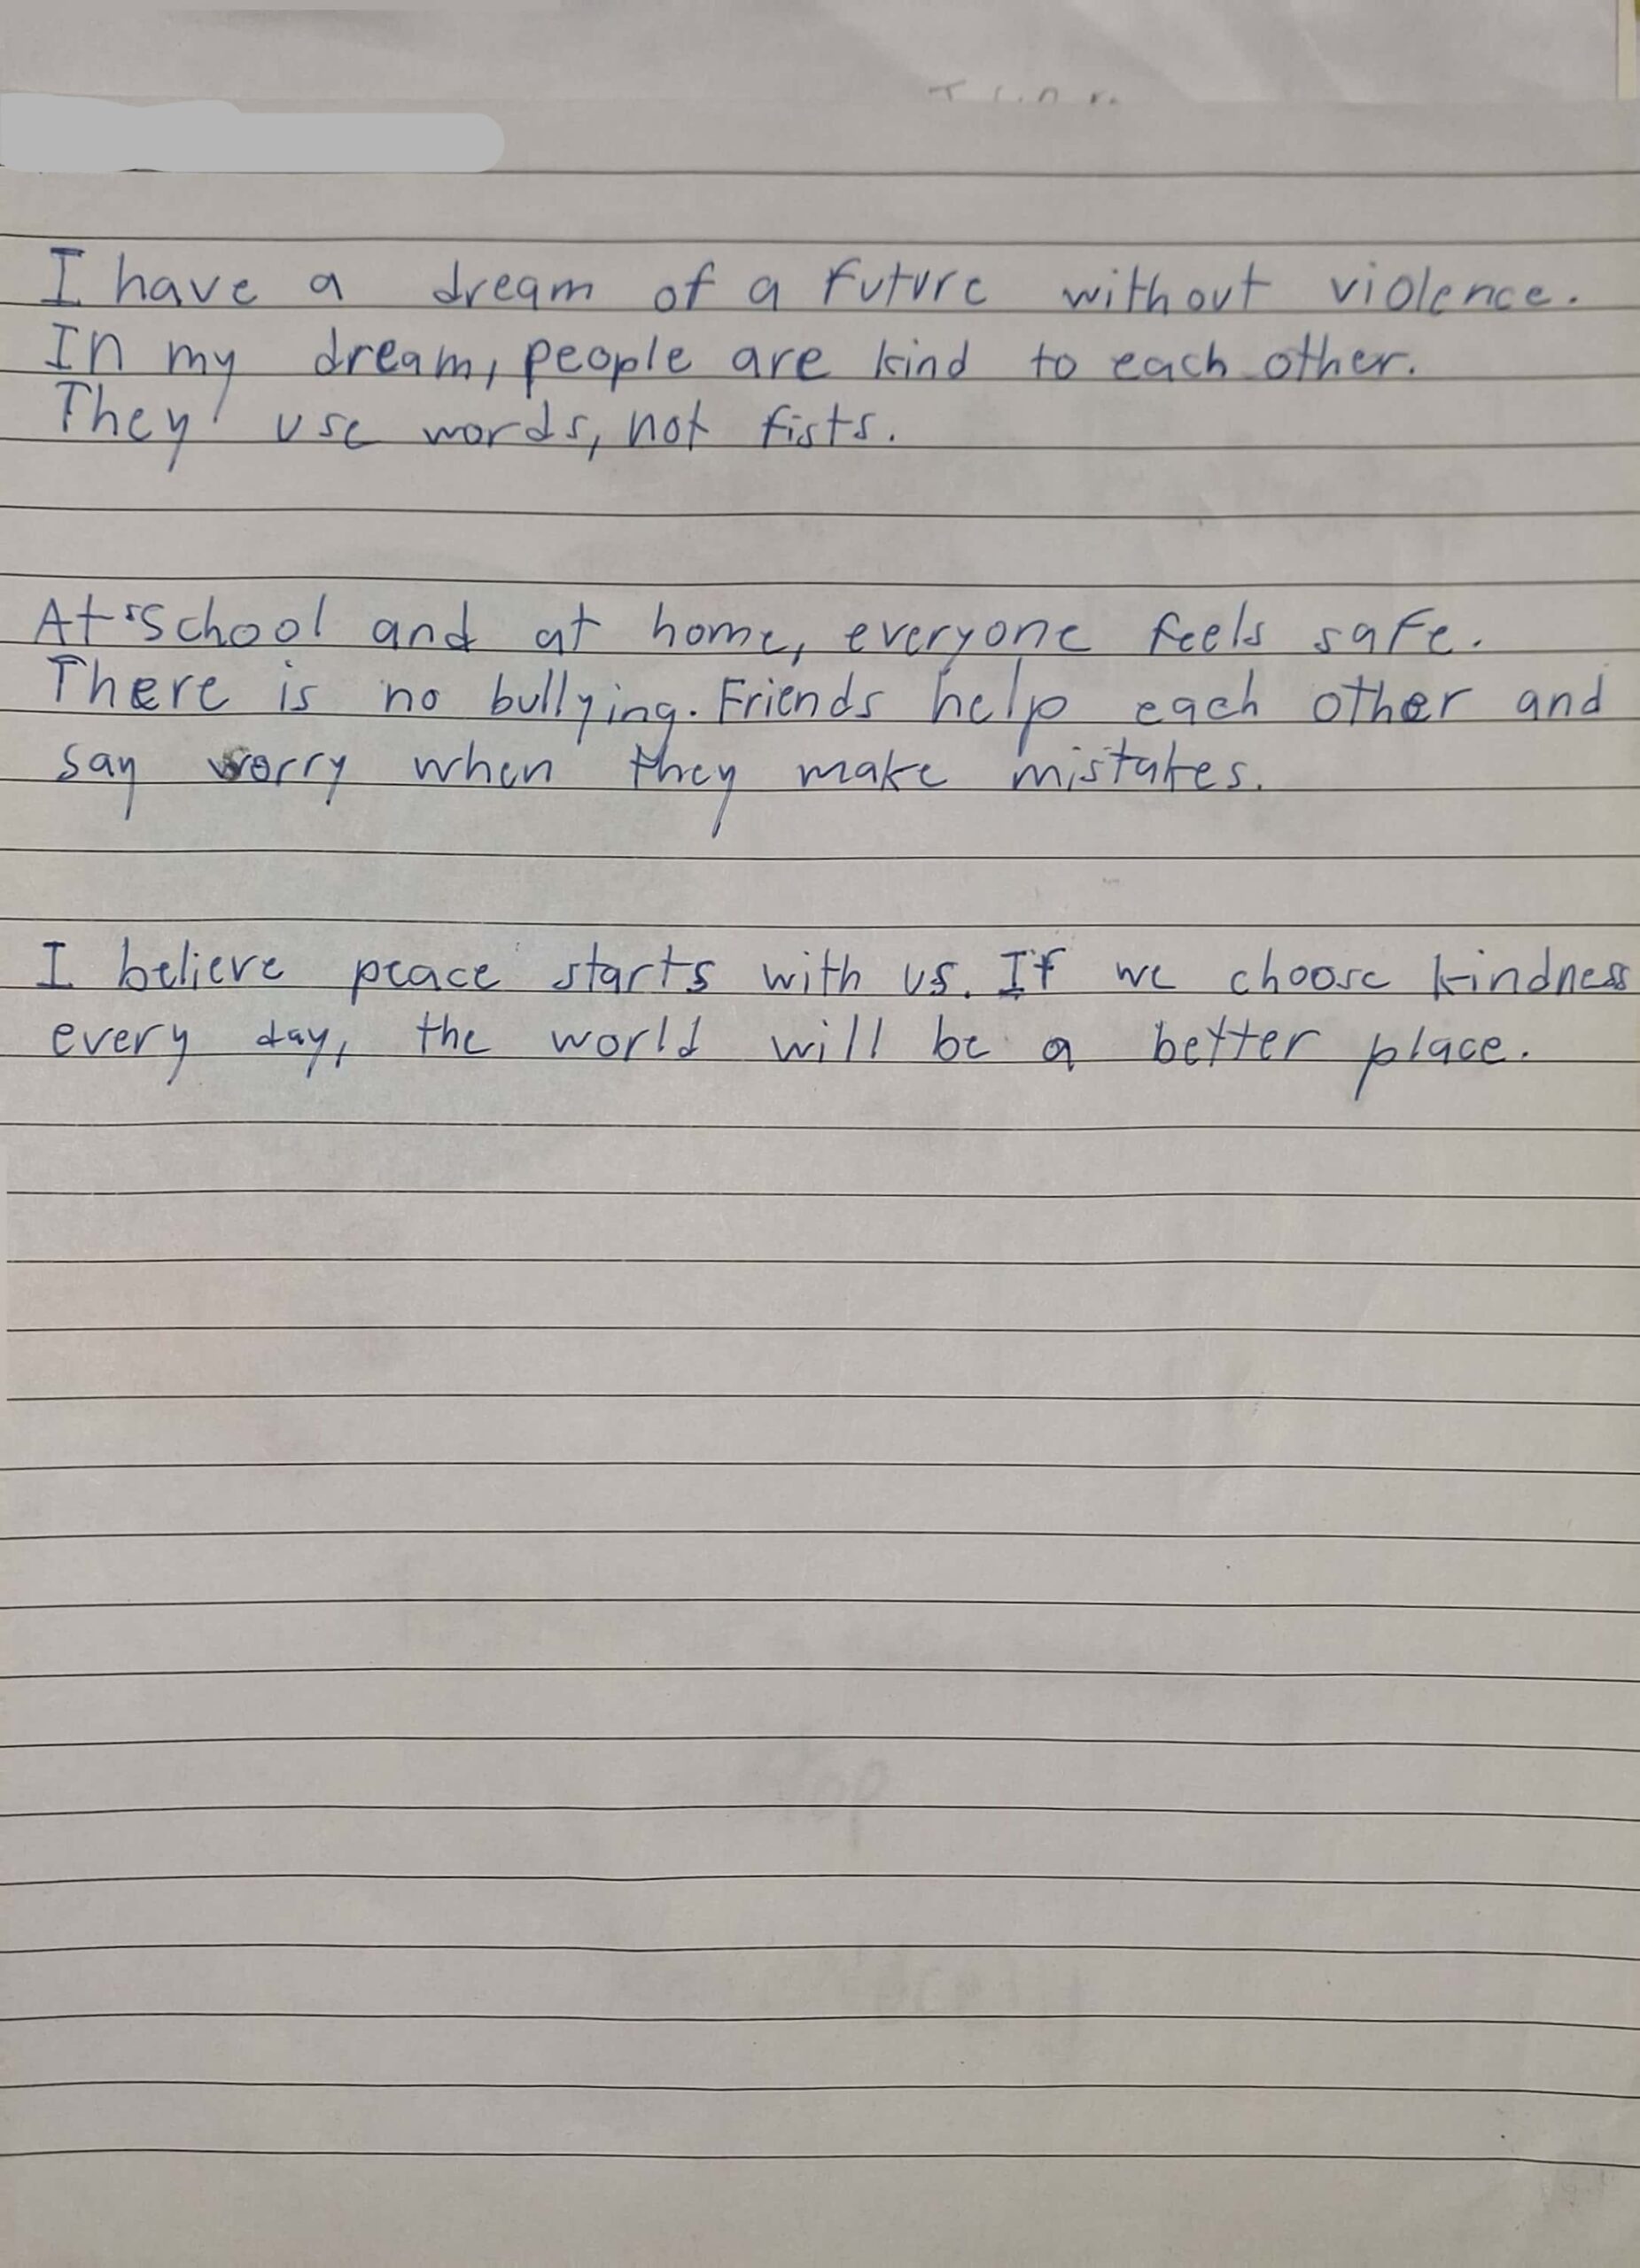 I have a dream of a future without violence.
In my dream, people are kind to each other.
They use words, not fists.
At school and at home, everyone feels safe.
There is no bullying. Friends help each other and
say sorry when they make mistakes.
I believe peace starts with us. If we choose kindness
every day, the world will be a better place.